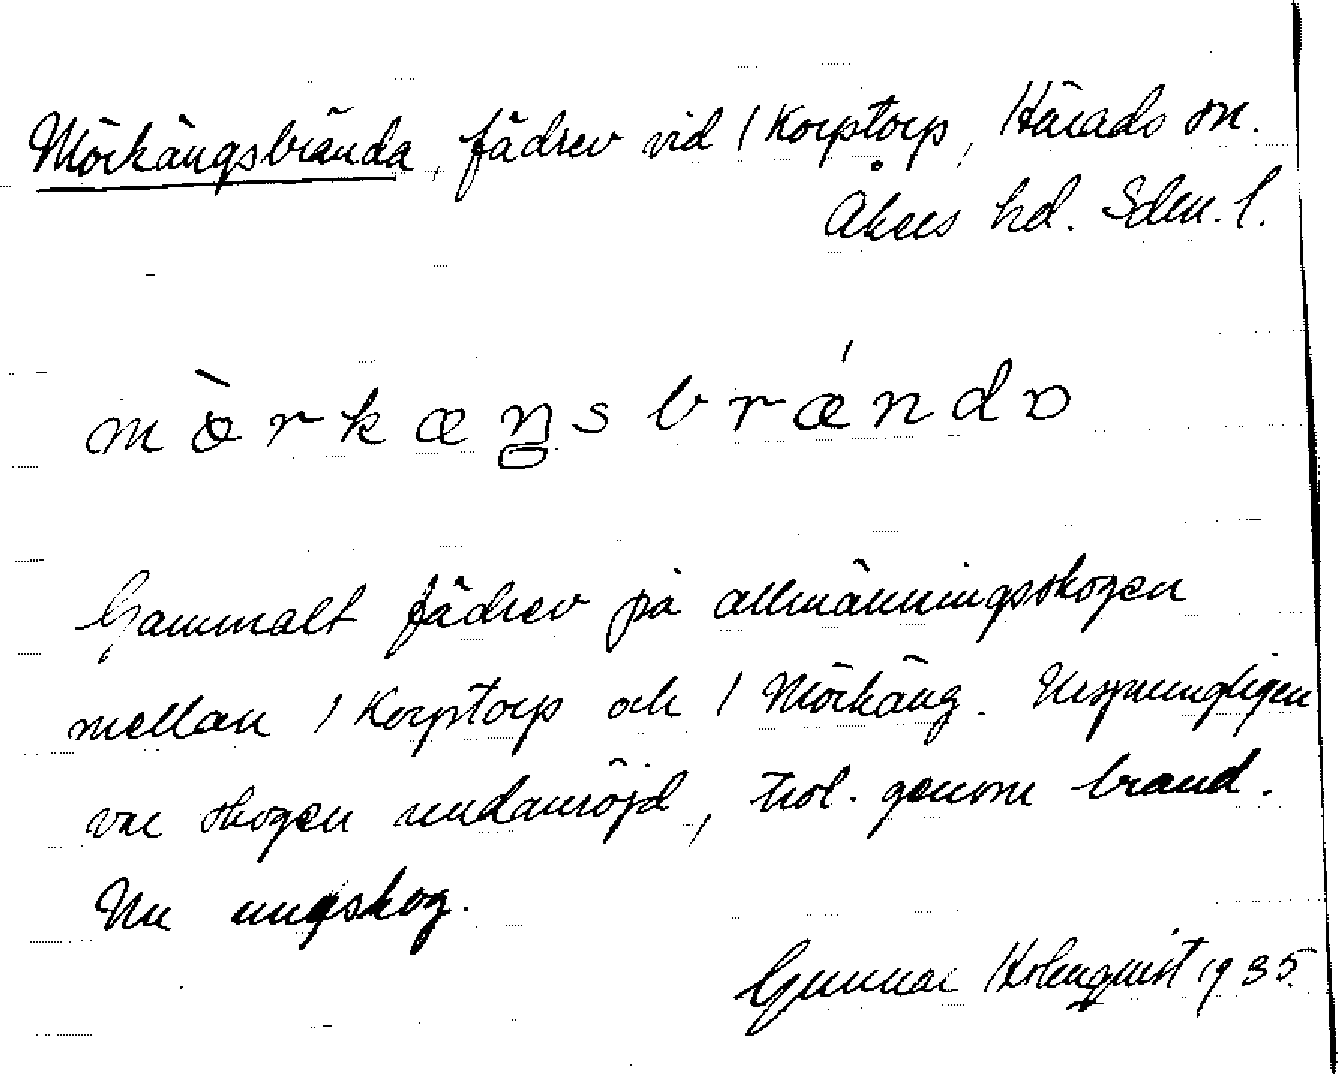 Mörkängsbrända, fädrev vid / Korptorp, Härads sn.
Åkers hd. Sdm. l.
mò̤rkæŋsbrǽndɒ
Gammalt fädrev på allmänningsskogen
mellan / Korptorp och / Mörkäng. Ursprungligen
var skogen undanröjd, trol. genom brand.
Nu ungskog.
Gunnar Holmquist 1935.